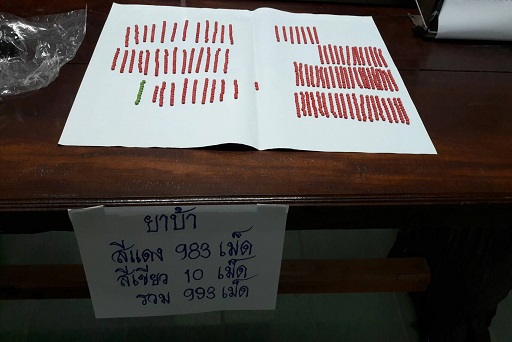 ยาบ้า
สีแดง 983 เม็ด
สีเขียว 10 เม็ด
รวม 993 เม็ด